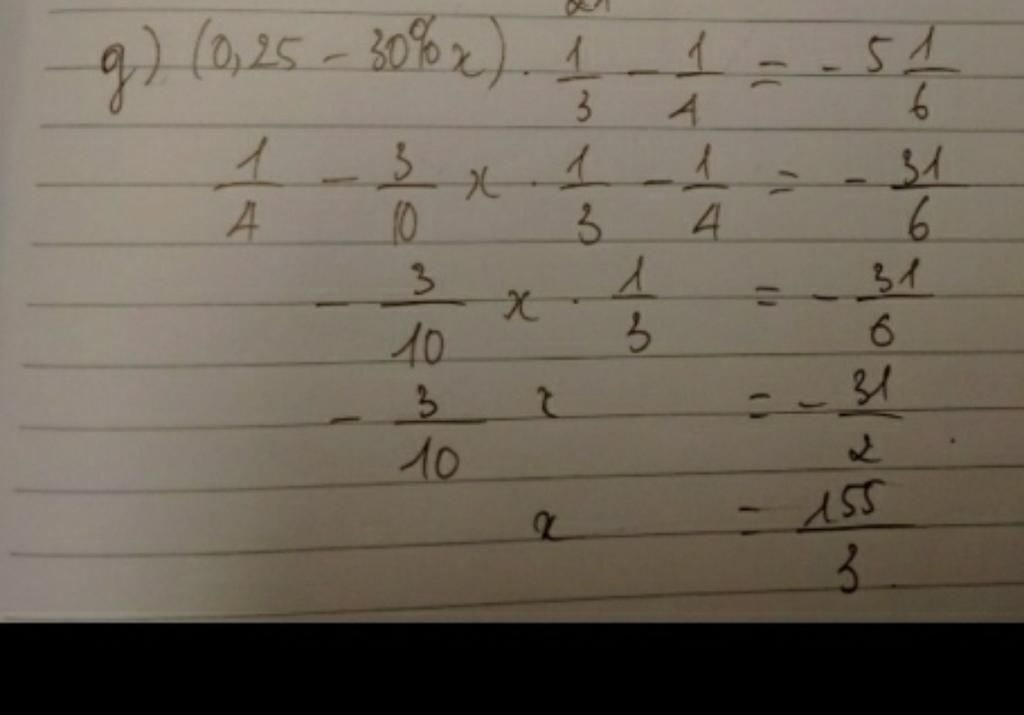 g) (0,25 - 30%x) . 1/3 - 1/4 = - 5 1/6
1/4 - 3/10 x . 1/3 - 1/4 = - 31/6
- 3/10 x . 1/3 = - 31/6
- 3/10 x = - 31/2
x = 155/3